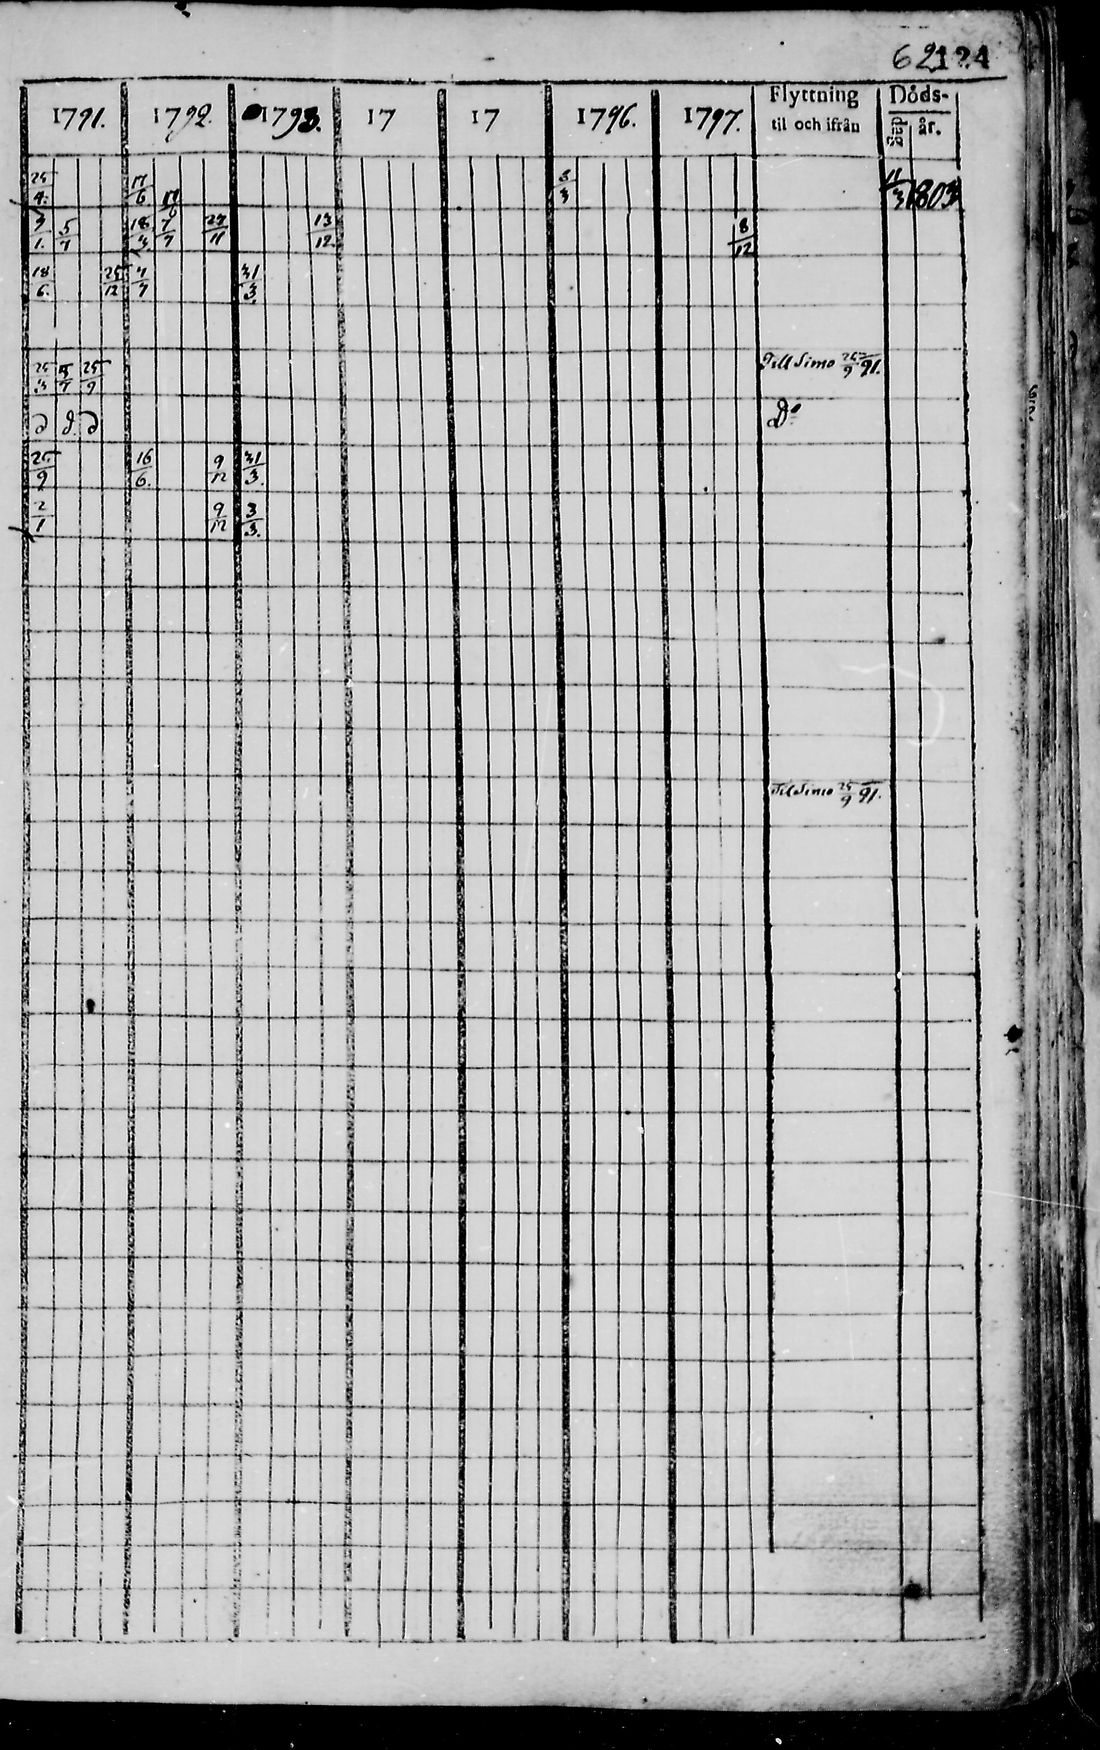 62124
1791. 1792. 1793. 17 17 1796. 1797. Flyttning til och ifrån Döds- år.
25/4. 17/6 17/6 3/3 11/3 1803
3/1. 5/7 18/3. 7/7 27/11 13/12 18/12
18/6. 25/12 7/7 31/3.
25/3 3/7 25/9 Till Simo 25/9 91.
d d. d Do
25/9 16/6. 9/12 31/3.
2/1 9/12 3/3.
Til Simo 25/9 91.